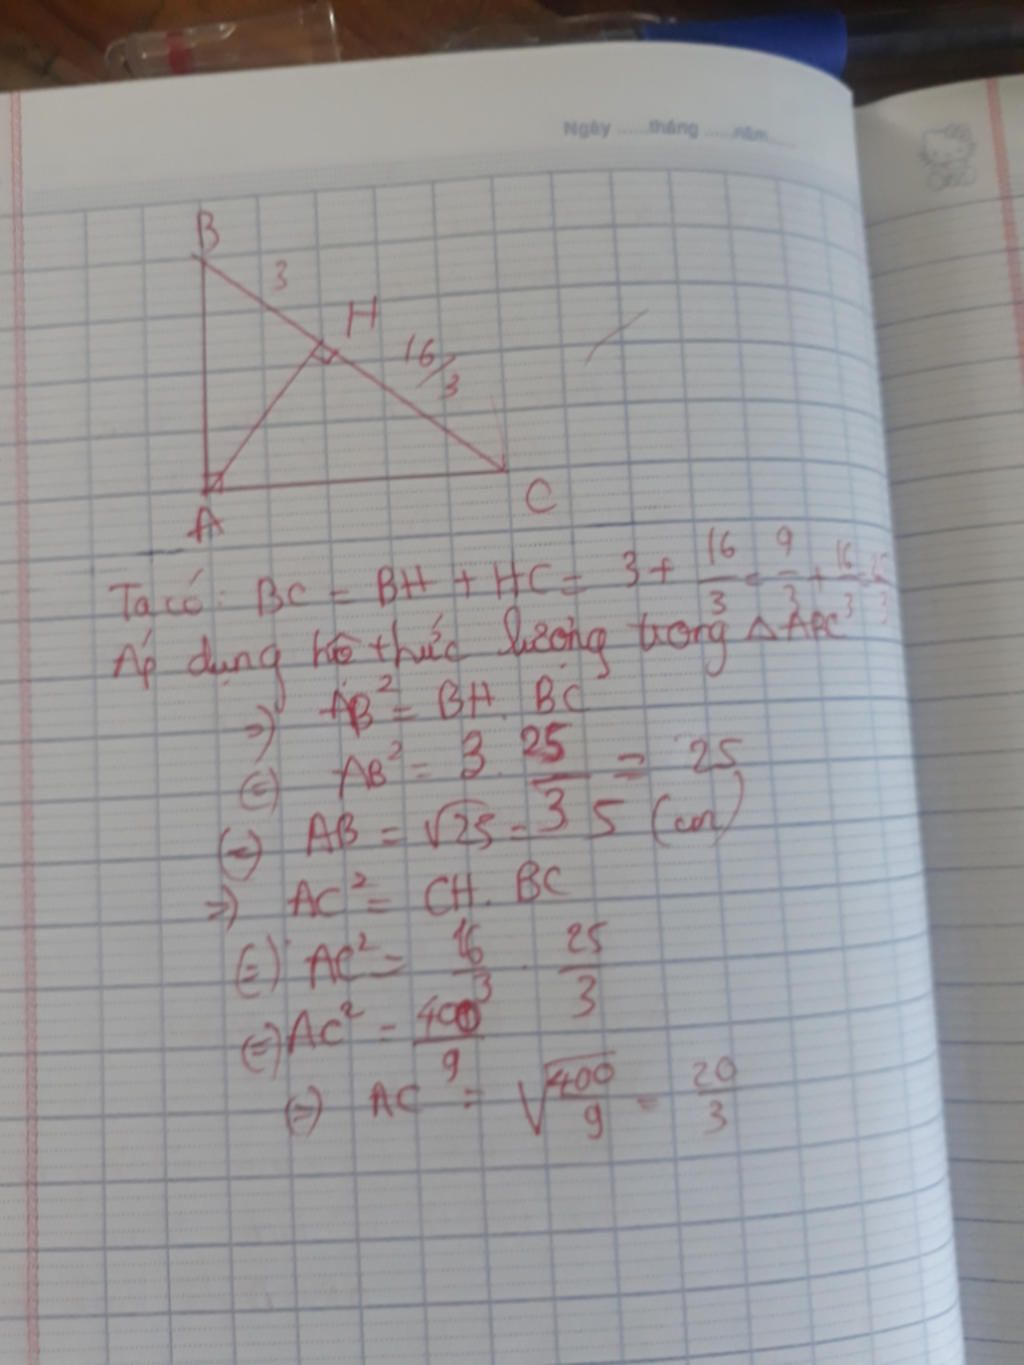 Ngày ......tháng ......năm......
B
3
H
16/3
A
C
Ta có: BC = BH + HC = 3 + 16/3 = 9/3 + 16/3 = 25/3
Áp dụng hệ thức lượng trong △ABC
=) AB² = BH. BC
(=) AB² = 3. 25/3 = 25
(=) AB = √25 = 5 (cm)
=) AC² = CH. BC
(=) AC² = 16/3 . 25/3
(=) AC² = 400/9
(=) AC = √400/9 = 20/3